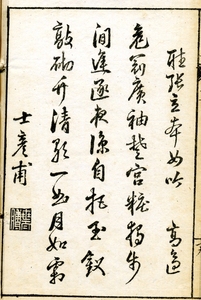 聽張立本女吟 高適
危冠廣袖楚宮粧獨步
閒庭逐夜涼自把玉釵
敲砌竹清歌一曲月如霜
士彥甫